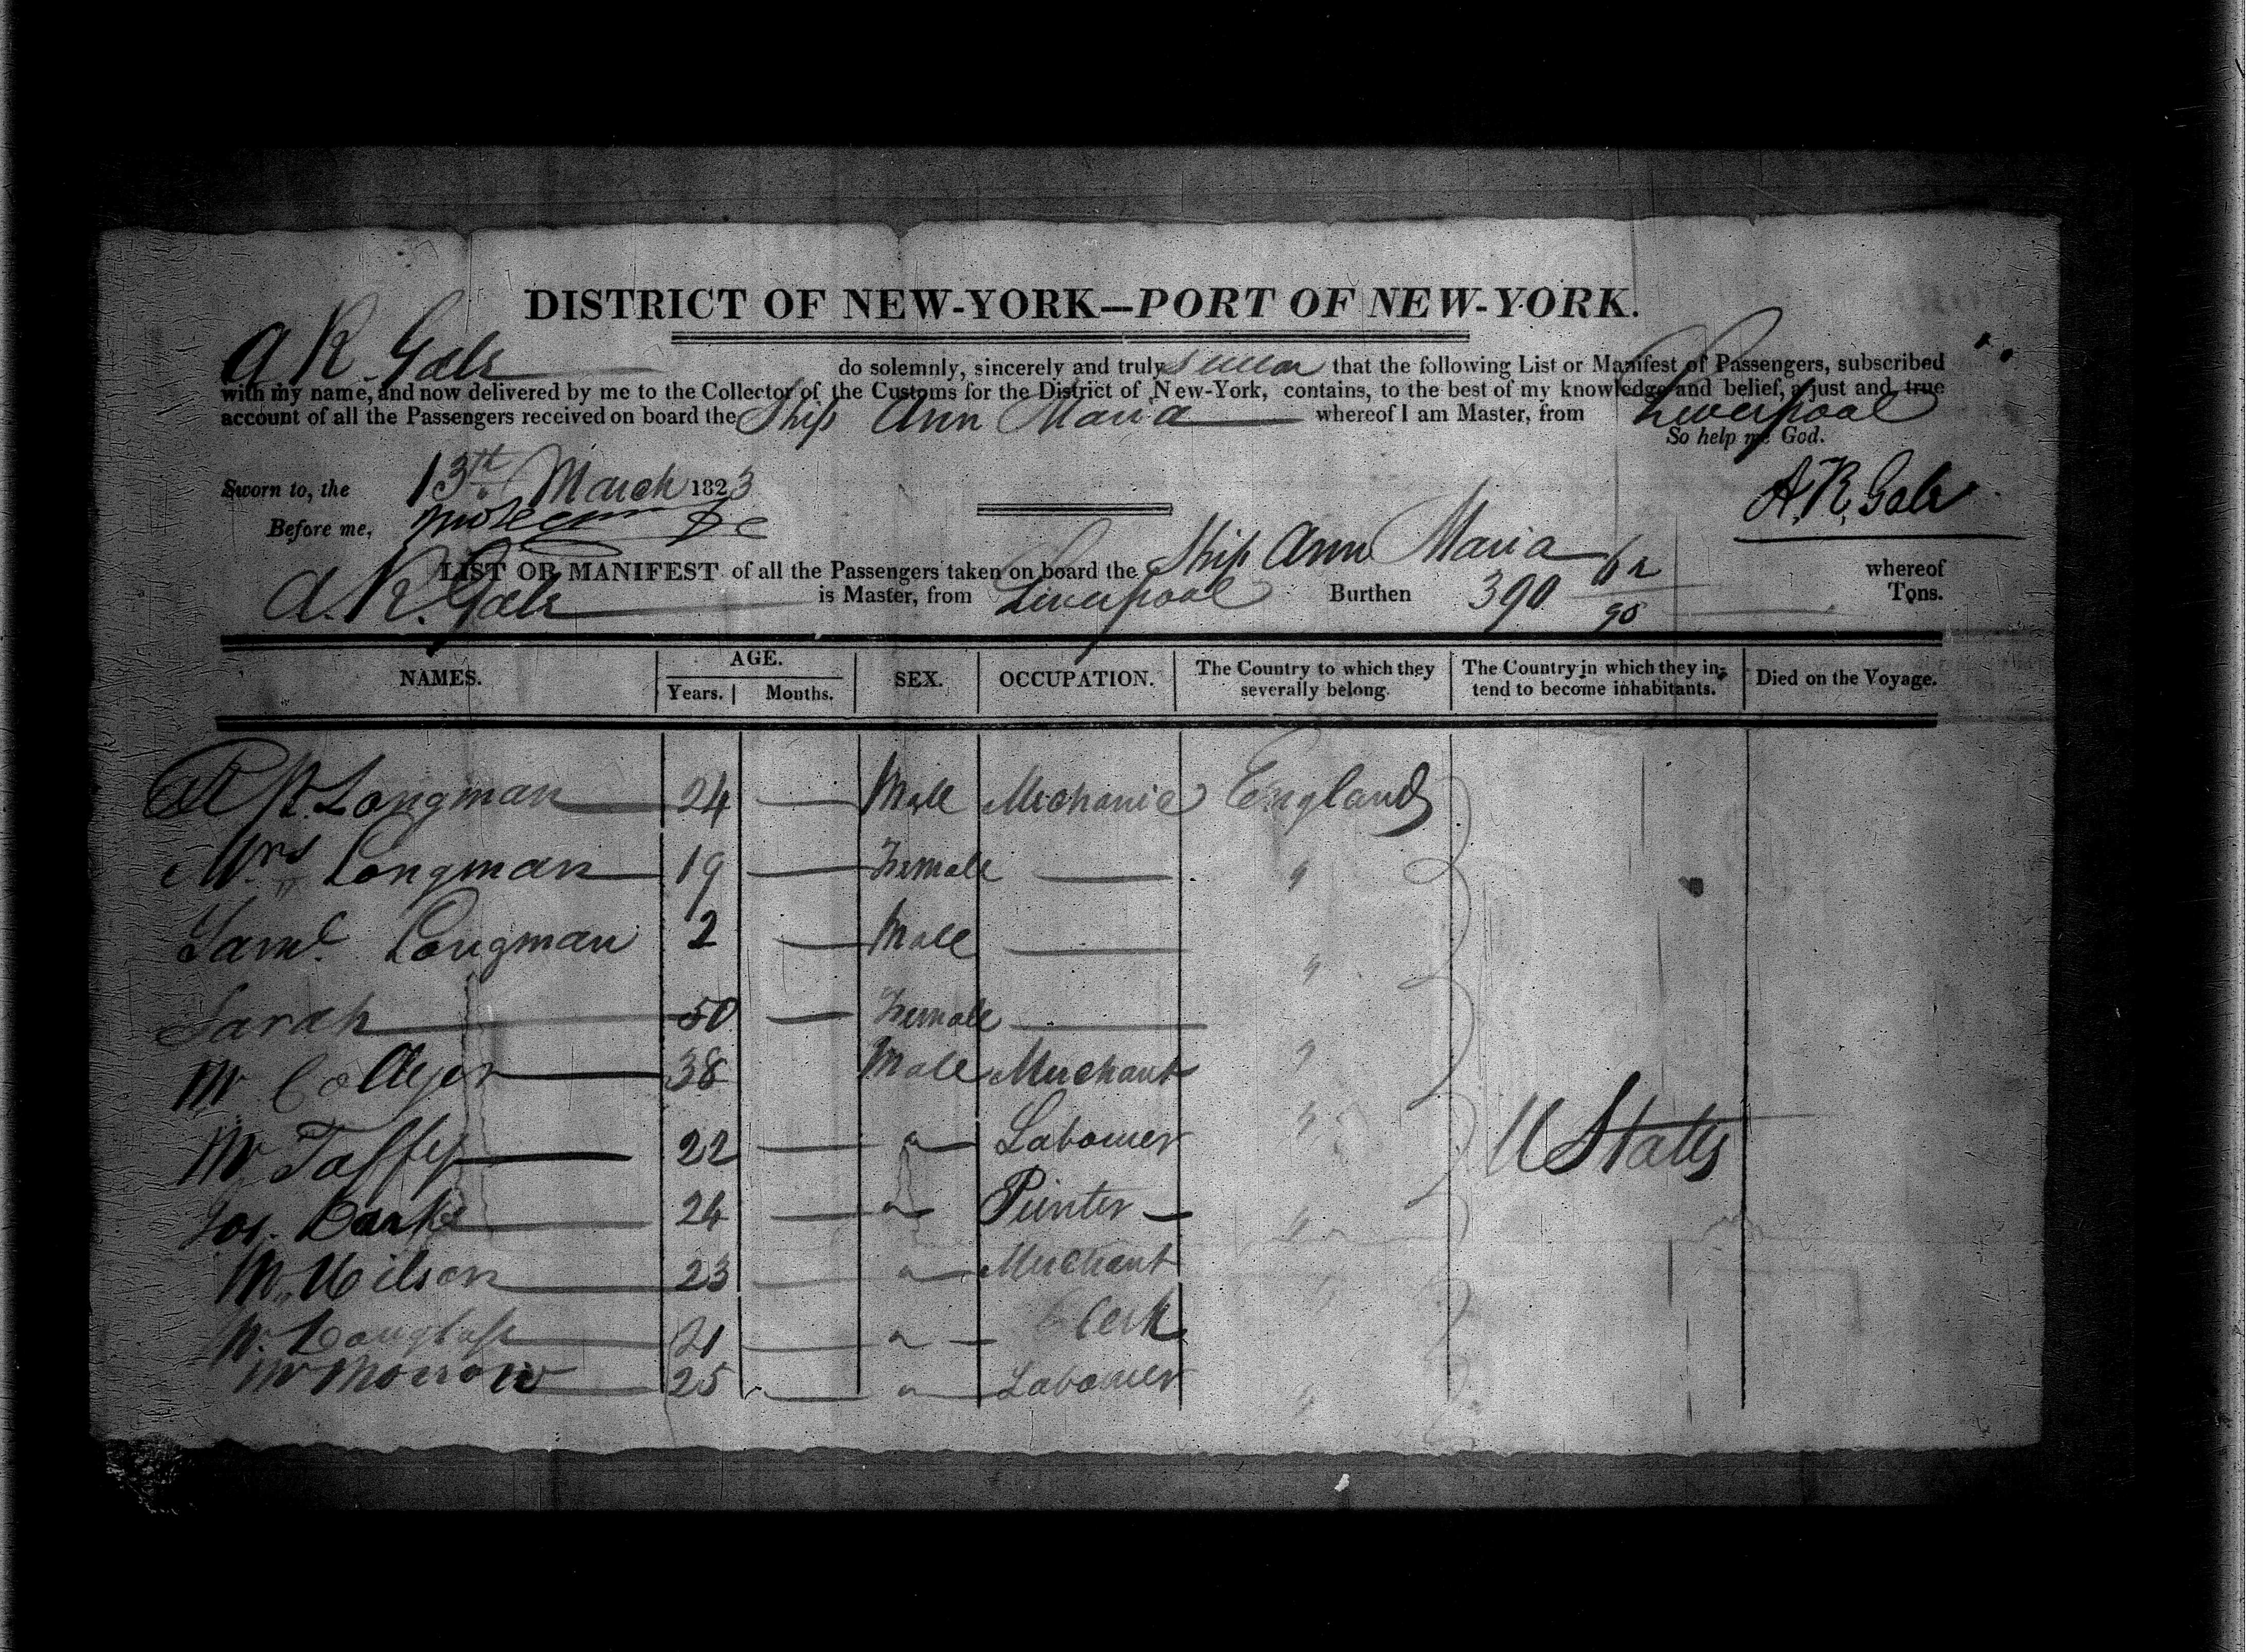 DISTRICT OF NEW-YORK—PORT OF NEW-YORK.
A R Gale do solemnly, sincerely and truly swear that the following List or Manifest of Passengers, subscribed
with my name, and now delivered by me to the Collector of the Customs for the District of New-York, contains, to the best of my knowledge and belief, a just and true
account of all the Passengers received on board the Ship Ann Maria whereof I am Master, from Liverpool
So help me God.
Sworn to, the 13th March 1823 A. R. Gale
Before me,
LIST OR MANIFEST of all the Passengers taken on board the Ship Ann Maria whereof
A. R. Gale is Master, from Liverpool Burthen 390 62/95 Tons.
NAMES. AGE. SEX. OCCUPATION. The Country to which they severally belong. The Country in which they intend to become inhabitants. Died on the Voyage.
Years. Months.
R. Longman 24 — Male Mechanic England
Mrs Longman 19 — Female — "
Saml. Longman 2 — Male — "
Sarah 50 — Female — "
Mr Collyer 38 Male Merchant "
Mr Taffey 22 — " Labourer " U States
Jos. 24 — " Printer "
Mr. Wilson 23 — " Merchant "
Mr. Douglass 21 — " Clerk
Mr Morrow 25 — " Labourer "